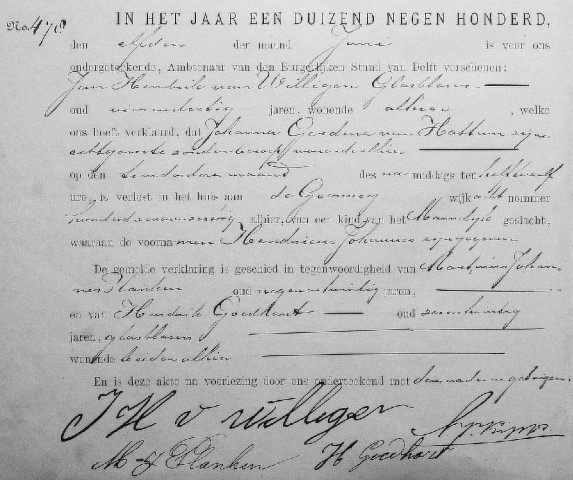 No. 478
IN HET JAAR EEN DUIZEND NEGEN HONDERD,
den elfden der maand Juni is voor ons
ondergeteekende, Ambtenaar van den Burgerlijken Stand van Delft verschenen:
Jan Hendrik van Willigen Glasblazer
oud jaren, wonende alhier, welke
ons heeft verklaard, dat Johanna van Hattum zijne
echtgenoote zonder beroep wonende alhier
op den dezer maand des na middags ten half twaalf
ure, is verlost in het huis aan de wijk acht nummer
alhier, van een kind van het Mannelijk geslacht,
waaraan de voornamen Hendricus Johannes zijn gegeven
De gemelde verklaring is geschied in tegenwoordigheid van Martinus Johan-
nes Planken oud jaren,
en van Hendrik Goedhart oud
jaren, glasblazers
wonende beiden alhier
En is deze akte na voorlezing door ons onderteekend met
J H v Willigen
M J Planken H Goedhart